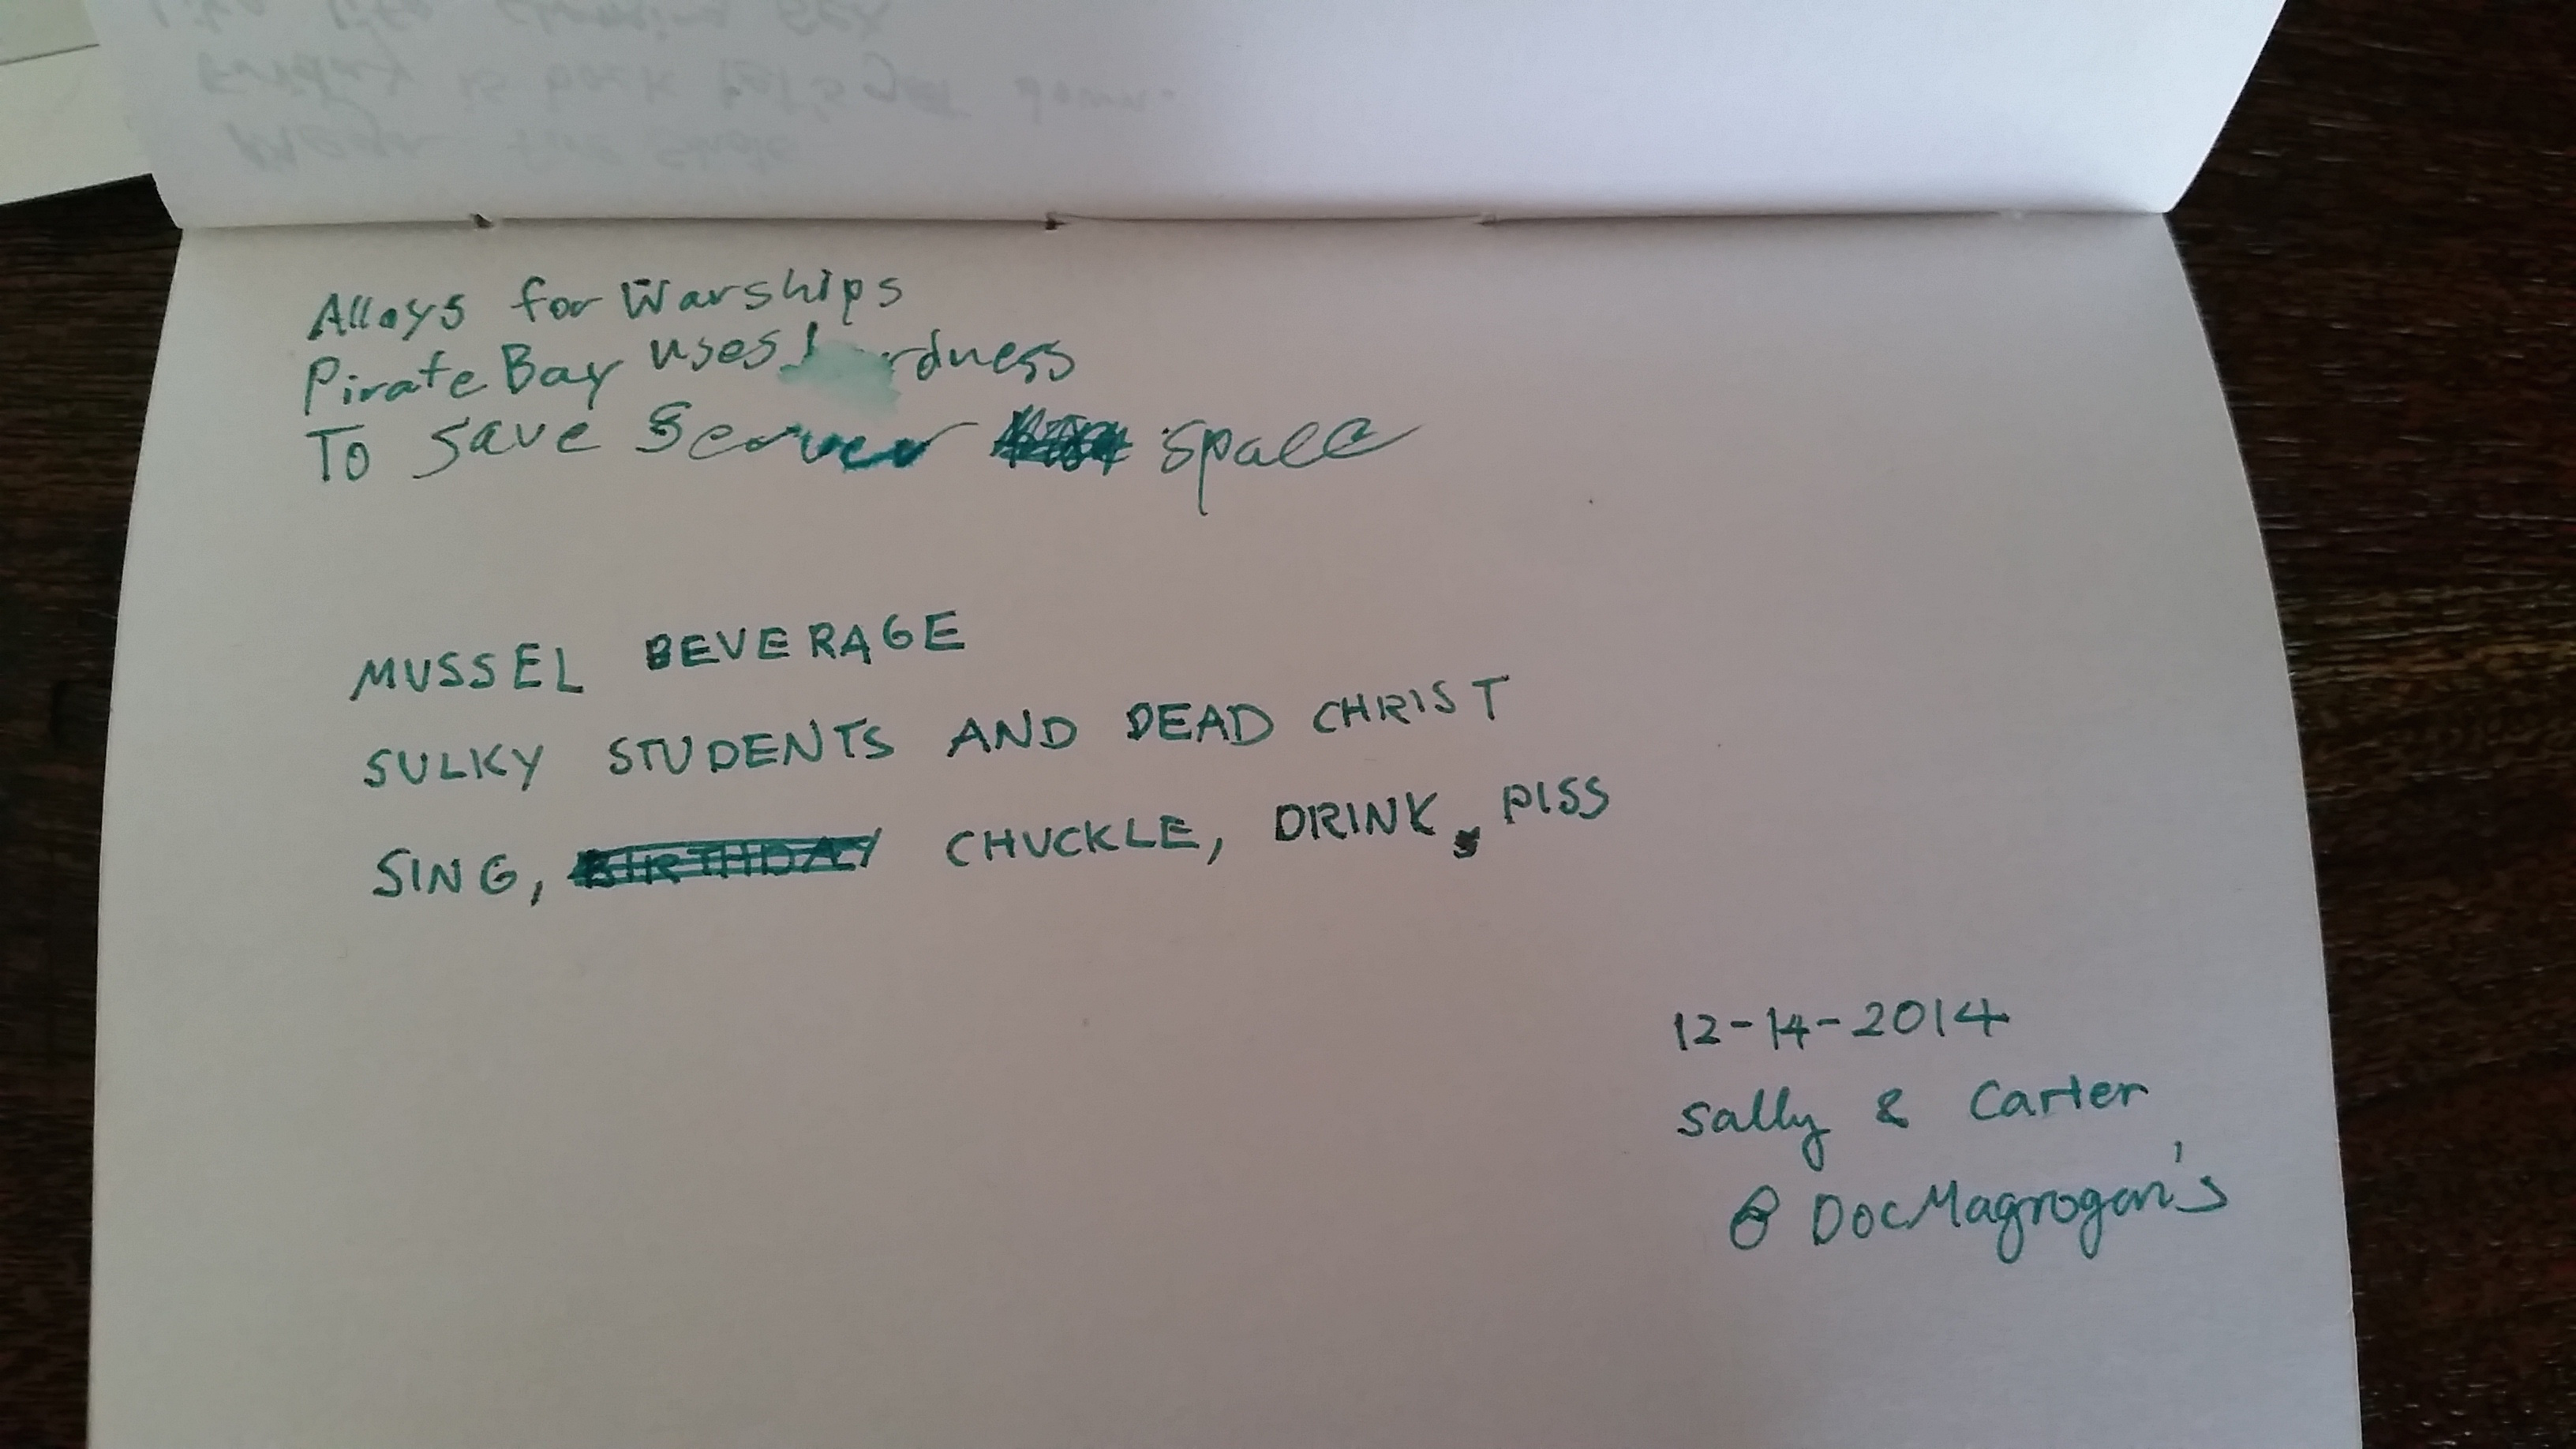 Alloys for Warships
Pirate Bay uses
To save Server space
MUSSEL BEVERAGE
SULKY STUDENTS AND DEAD CHRIST
SING, BIRTHDAY CHUCKLE, DRINK, PISS
12-14-2014
Sally & Carter
@ DocMagrogan's